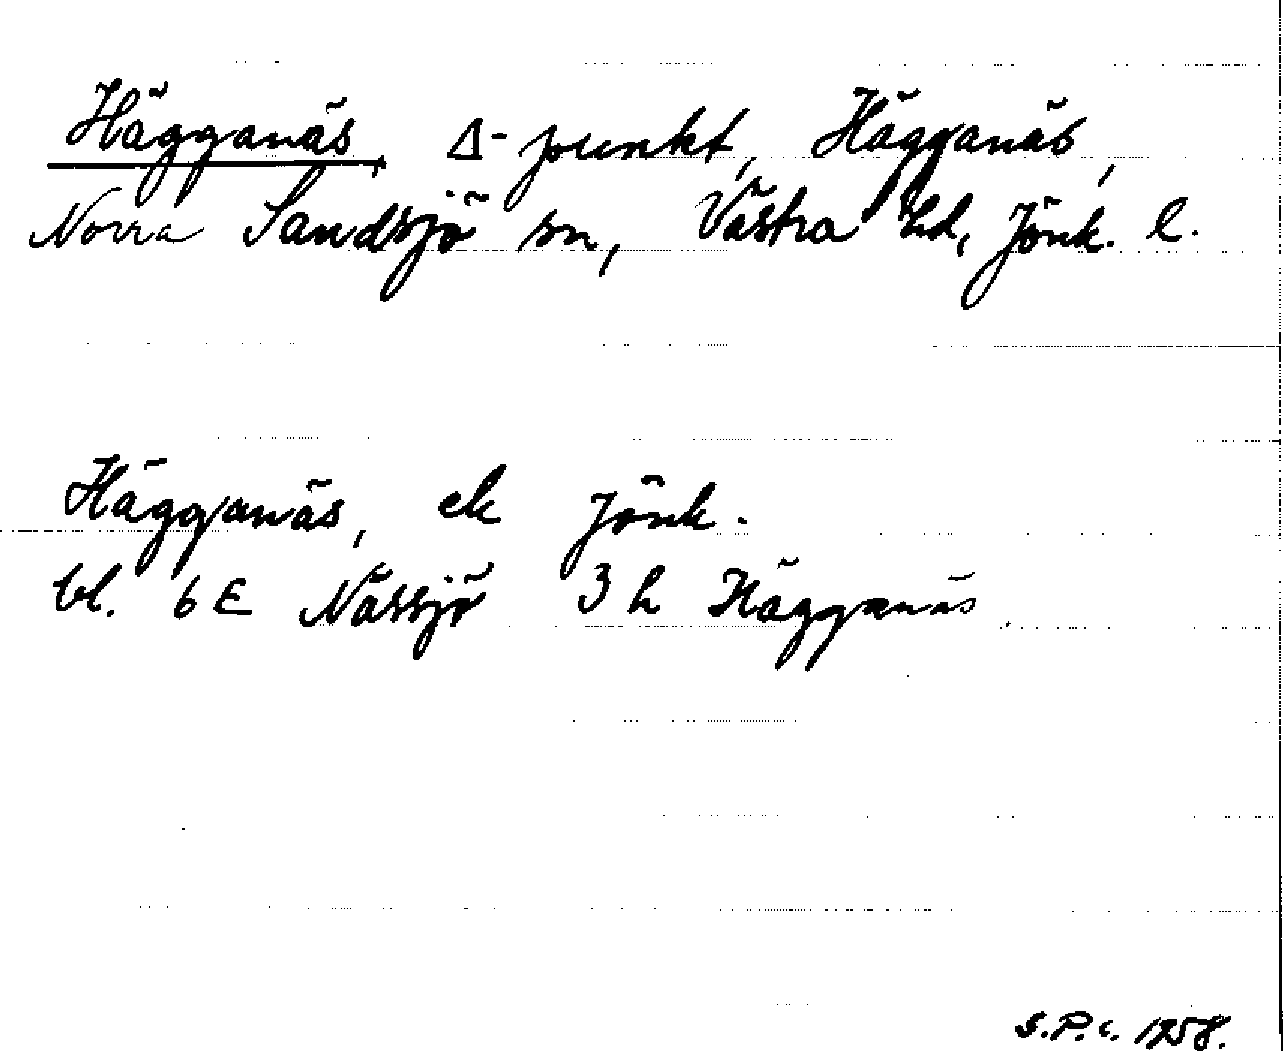 Hägganäs, Δ-punkt, Hägganäs,
Norra Sandsjö sn, Västra hd, Jönk. l.
Hägganäs, ek Jönk.
bl. 6E Nässjö 3 h Hägganäs.
S.P.c. 1958.